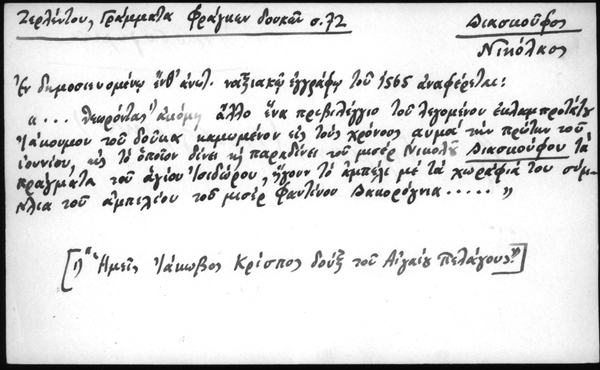 Ζερλέντου, Γράμματα Φράγκων δουκῶν σ. 72
Διασκοῦφος
Νικόλαος
Ἐν δημοσιευομένῳ ἔνθ' ἀνωτ. ναξιακῷ ἐγγράφῳ τοῦ 1565 ἀναφέρεται:
«... θεωρόντας ἀκόμη ἄλλο ἕνα πρεβιλέγγιο τοῦ λεγομένου ἐκλαμπροτάτου
Ἰάκουμου τοῦ δούκα καμωμένον εἰς τοὺς χρόνους αφμα τὴν πρώτην τοῦ
ἰουνίου, εἰς τὸ ὁποῖον δίνει κὴ παραδίνει τοῦ μισὲρ Νικολοῦ Διασκούφου τὰ
πράγματα τοῦ ἁγίου Ἰσιδώρου, ἤγουν τὸ ἀμπέλι μὲ τὰ χωράφιά του σύμ-
πλια τοῦ ἀμπελίου τοῦ μισὲρ Φαντίνου Δακορόγνια.....»
[1) "Ἡμεῖς Ἰάκωβος Κρίσπος δοὺξ τοῦ Αἰγαίου Πελάγους"]